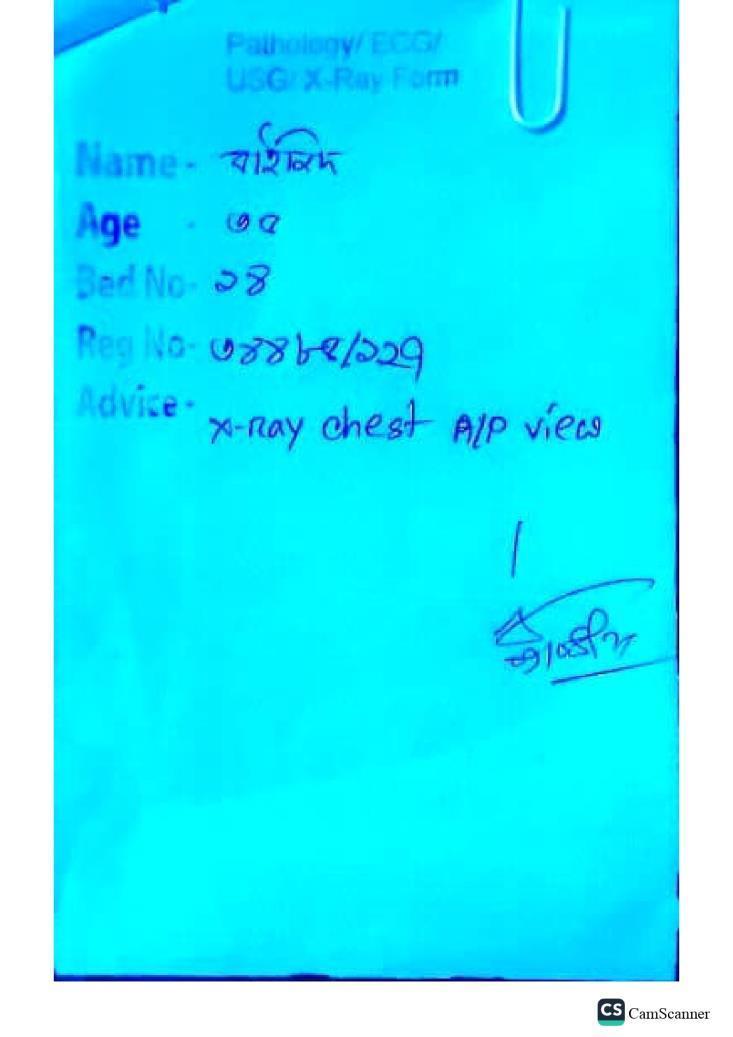 Pathology/ ECG/
USG/ X-Ray Form
Name -
Age - ৩৫
Bed No- ২৪
Reg No- ৩৪৪৮৫/১২৭
Advice-
X-Ray chest A/P view
CS CamScanner